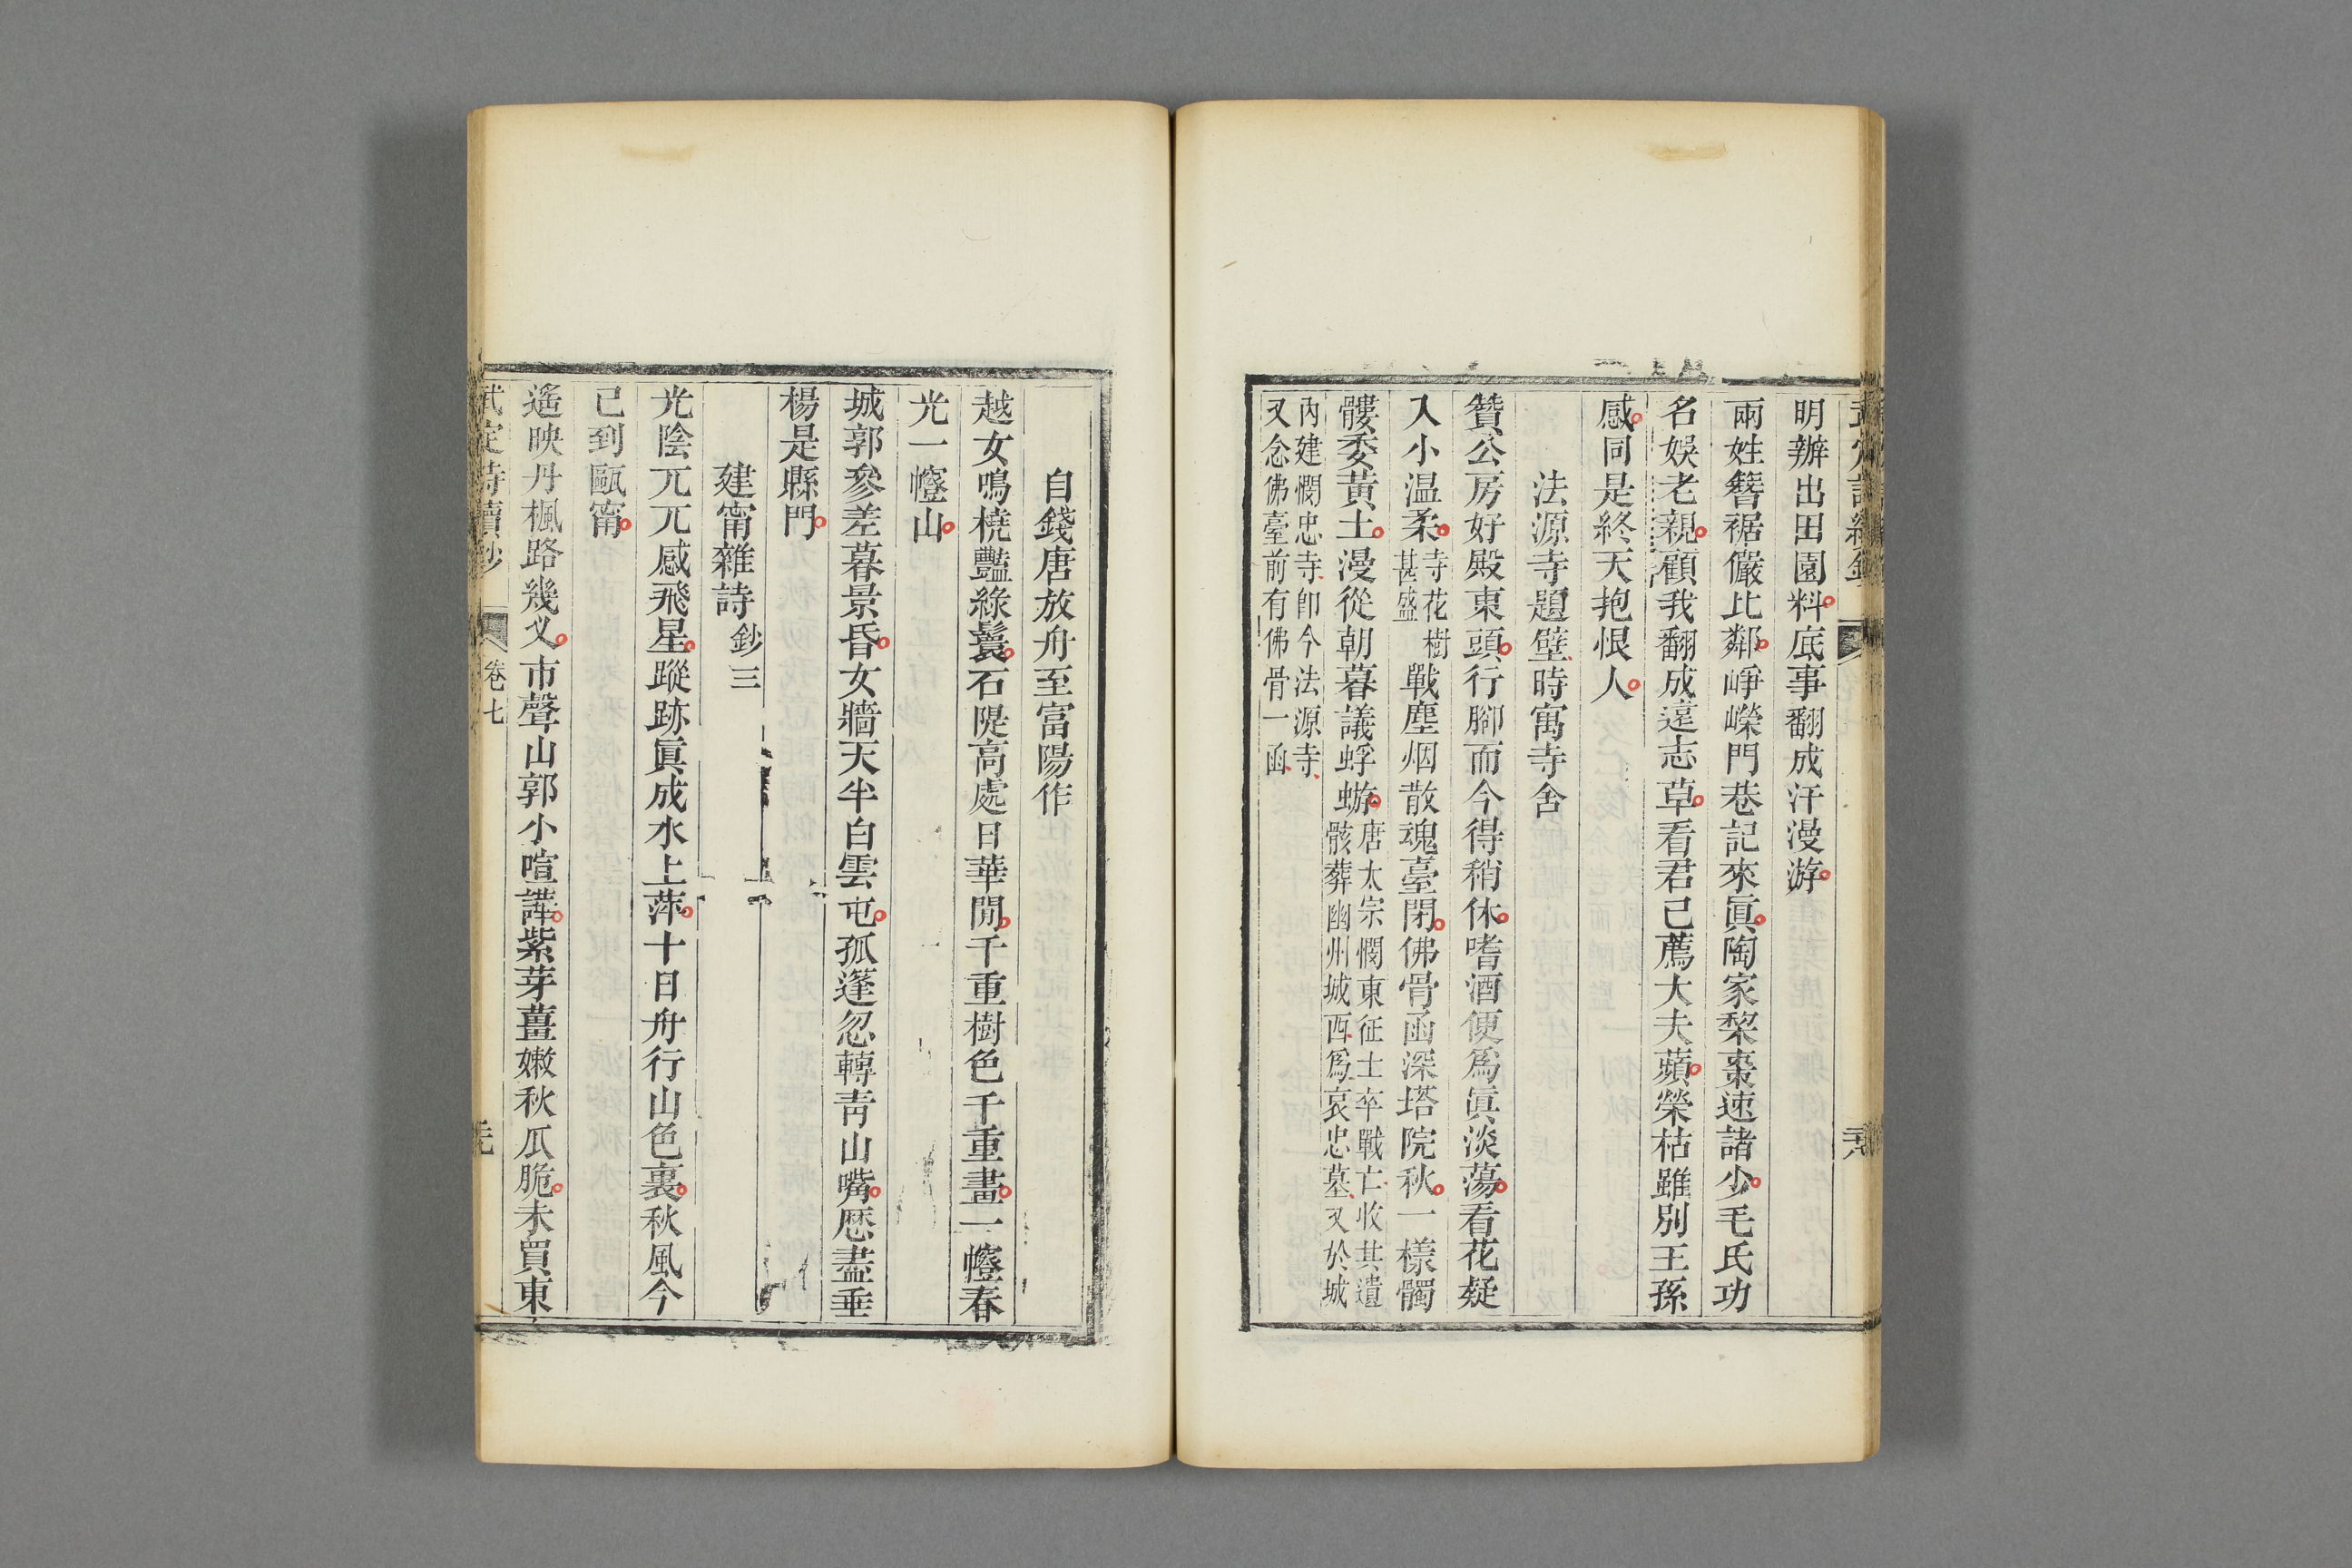 明辦出田園料底事翻成汗漫游
兩姓簪裾儼比鄰崢嶸門巷記來眞陶家棃棗速諸少毛氏功
名娛老親顧我翻成遠志草看君已薦大夫蘋榮枯雖別王孫
感同是終天抱恨人
法源寺題壁時寓寺舍
贊公房好殿東頭行腳而今得稍休嗜酒便爲眞淡蕩看花疑
入小温柔寺花樹甚盛戰塵烟散魂臺閉佛骨函深塔院秋一樣髑
髏委黃土漫從朝暮議蜉蝣唐太宗憫東征士卒戰亡收其遺骸葬幽州城西爲哀忠墓又於城
內建憫忠寺卽今法源寺
又念佛臺前有佛骨一函
自錢唐放舟至富陽作
越女鳴橈豔綠鬟石隄高處日華閒千重樹色千重畫一㡧春
光一㡧山
城郭參差暮景昏女牆天半白雲屯孤篷忽轉靑山嘴歷盡垂
楊是縣門
建甯雜詩鈔三
光陰兀兀感飛星蹤跡眞成水上萍十日舟行山色裏秋風今
已到甌甯
遙映丹楓路幾叉市聲山郭小喧譁紫芽薑嫩秋瓜脆未買東
武定詩續鈔 卷七